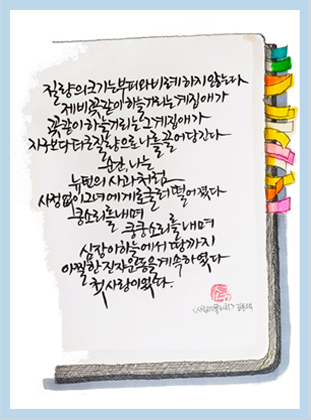 질량의 크기는 부피와 비례하지 않는다
제비꽃같이 하늘거리는 계집애가
꽃같이 하늘거리는 그 계집애가
지구보다 더 큰 질량으로 나를 끌어당긴다
순간, 나는
뉴턴의 사과처럼
사정없이 그녀에게로 굴러 떨어졌다
쿵 소리를 내며
쿵쿵 소리를 내며
심장이 하늘에서 땅까지
아찔한 진자운동을 계속하였다
첫사랑이었다.
<사랑의 물리학> 김인육